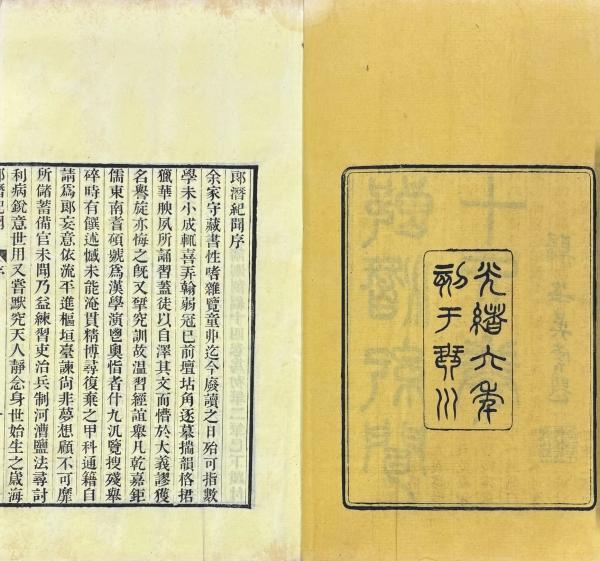 光緒六年
刻于琴川
郎潛紀聞序
余家守藏書性嗜雜覽童丱迄今廢讀之日殆可指數
學未小成輒喜弄翰弱冠已前壇坫角逐墓揣韻格捃
獵華腴夙所誦習蓋徒以自澤其文而憯於大義謬獲
名譽旋亦悔之旣又硏究訓故溫習經誼舉凡乾嘉鉅
儒東南耆碩號爲漢學演鬯奧恉者什九汎覽搜殘舉
碎時有饌述慽未能淹貫精博尋復棄之甲科通籍自
請爲郞妄意依流平進樞垣臺諫尙非夢想顧不可靡
所儲蓄備官未聞乃益練習吏治兵制河漕鹽法尋討
利病銳意世用又嘗默究天人靜念身世始生之歲海
郎潛紀聞 序 一